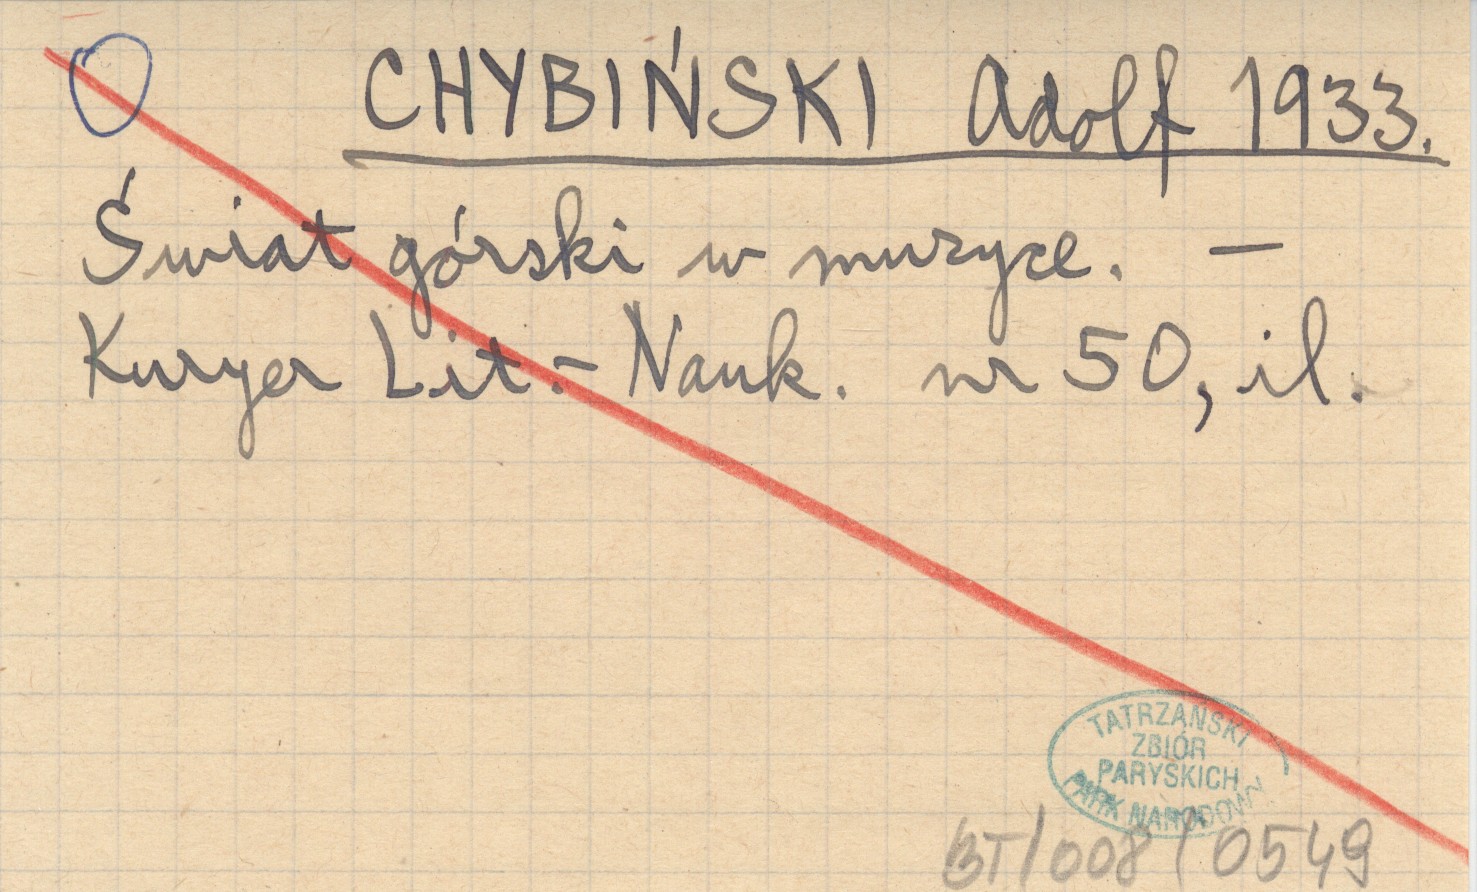 CHYBIŃSKI Adolf 1933.
Świat górski w muzyce. —
Kuryer Lit.- Nauk. nr 50, il.
TATRZAŃSKI
ZBIÓR
PARYSKICH
PARK NARODOWY
BT/008/0549